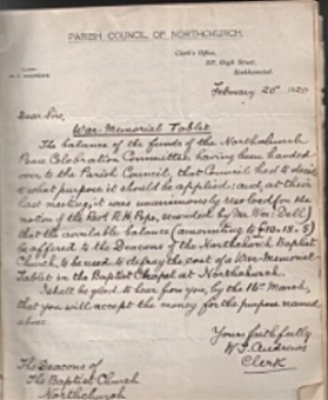 PARISH COUNCIL OF NORTHCHURCH.
CLERK:
W. T. ANDREWS
Clerk's Office,
High Street,
Berkhamsted.
February 20th 1920
Dear Sirs,
War-Memorial Tablet
The balance of the funds of the Northchurch
Peace Celebration Committee having been handed
over to the Parish Council, that Council had to decide
to what purpose it should be applied: and, at their
last meeting it was unanimously resolved (on the
motion of the Revd R. H. Pope, seconded by Mr. Wm: Dell)
that the available balance (amounting to £10-18-5)
be offered to the Deacons of the Northchurch Baptist
Church, to be used to defray the cost of a War-Memorial
Tablet in the Baptist Chapel at Northchurch.
I shall be glad to hear from you, by the 16th March,
that you will accept the money for the purpose named
above.
Yours faithfully
W. T. Andrews
Clerk
The Deacons of
The Baptist Church
Northchurch